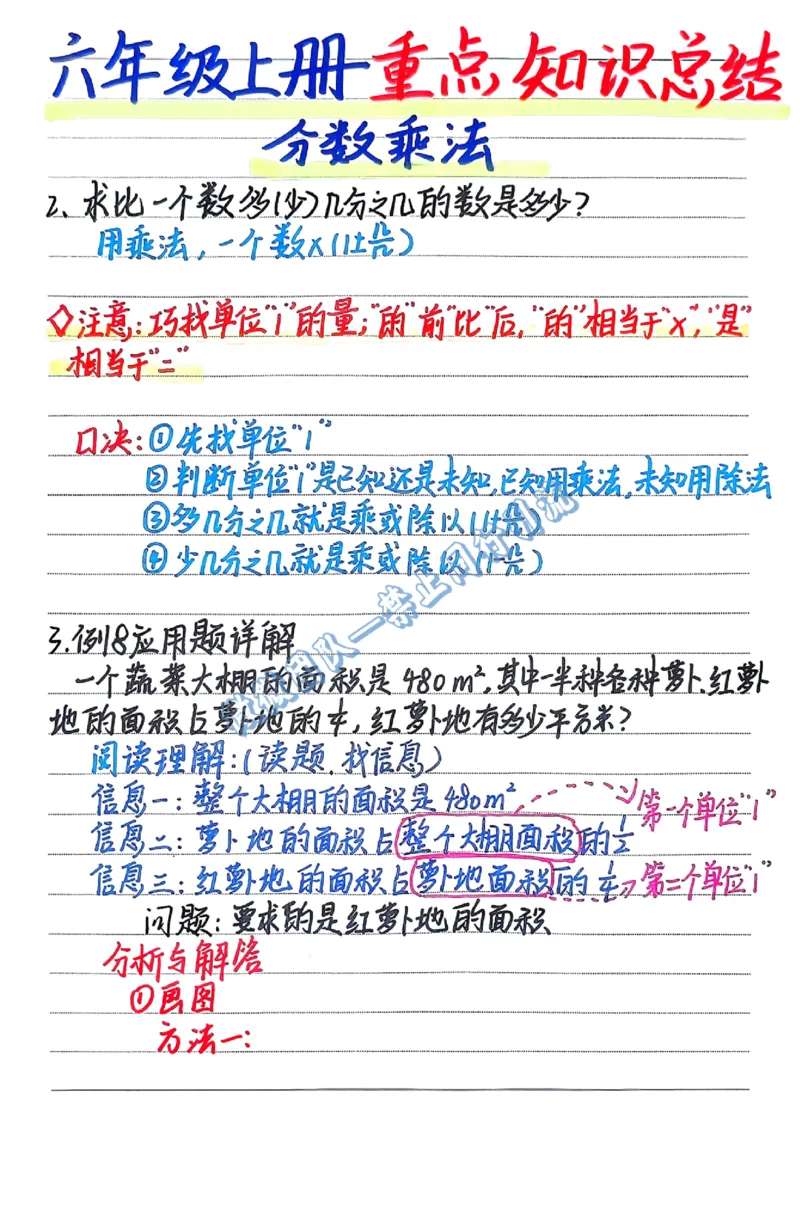 六年级上册重点知识总结
分数乘法
2、求比一个数多(少)几分之几的数是多少?
用乘法,一个数×(1±几/几)
◇注意:巧找单位"1"的量;"的"前"比"后,"的"相当于"×","是"
相当于"="
口决:①先找单位"1"
②判断单位"1"是已知还是未知,已知用乘法,未知用除法
③多几分之几就是乘或除以(1+几/几)
④少几分之几就是乘或除以(1-几/几)
3.例8应用题详解
一个蔬菜大棚的面积是480m²,其中一半种各种萝卜.红萝卜
地的面积占萝卜地的1/4,红萝卜地有多少平方米?
阅读理解:(读题.找信息)
信息一:整个大棚的面积是480m²
第一个单位"1"
信息二:萝卜地的面积占整个大棚面积的1/2
信息三:红萝卜地的面积占萝卜地面积的1/4
第二个单位"1"
问题:要求的是红萝卜地的面积
分析与解答
①画图
方法一: